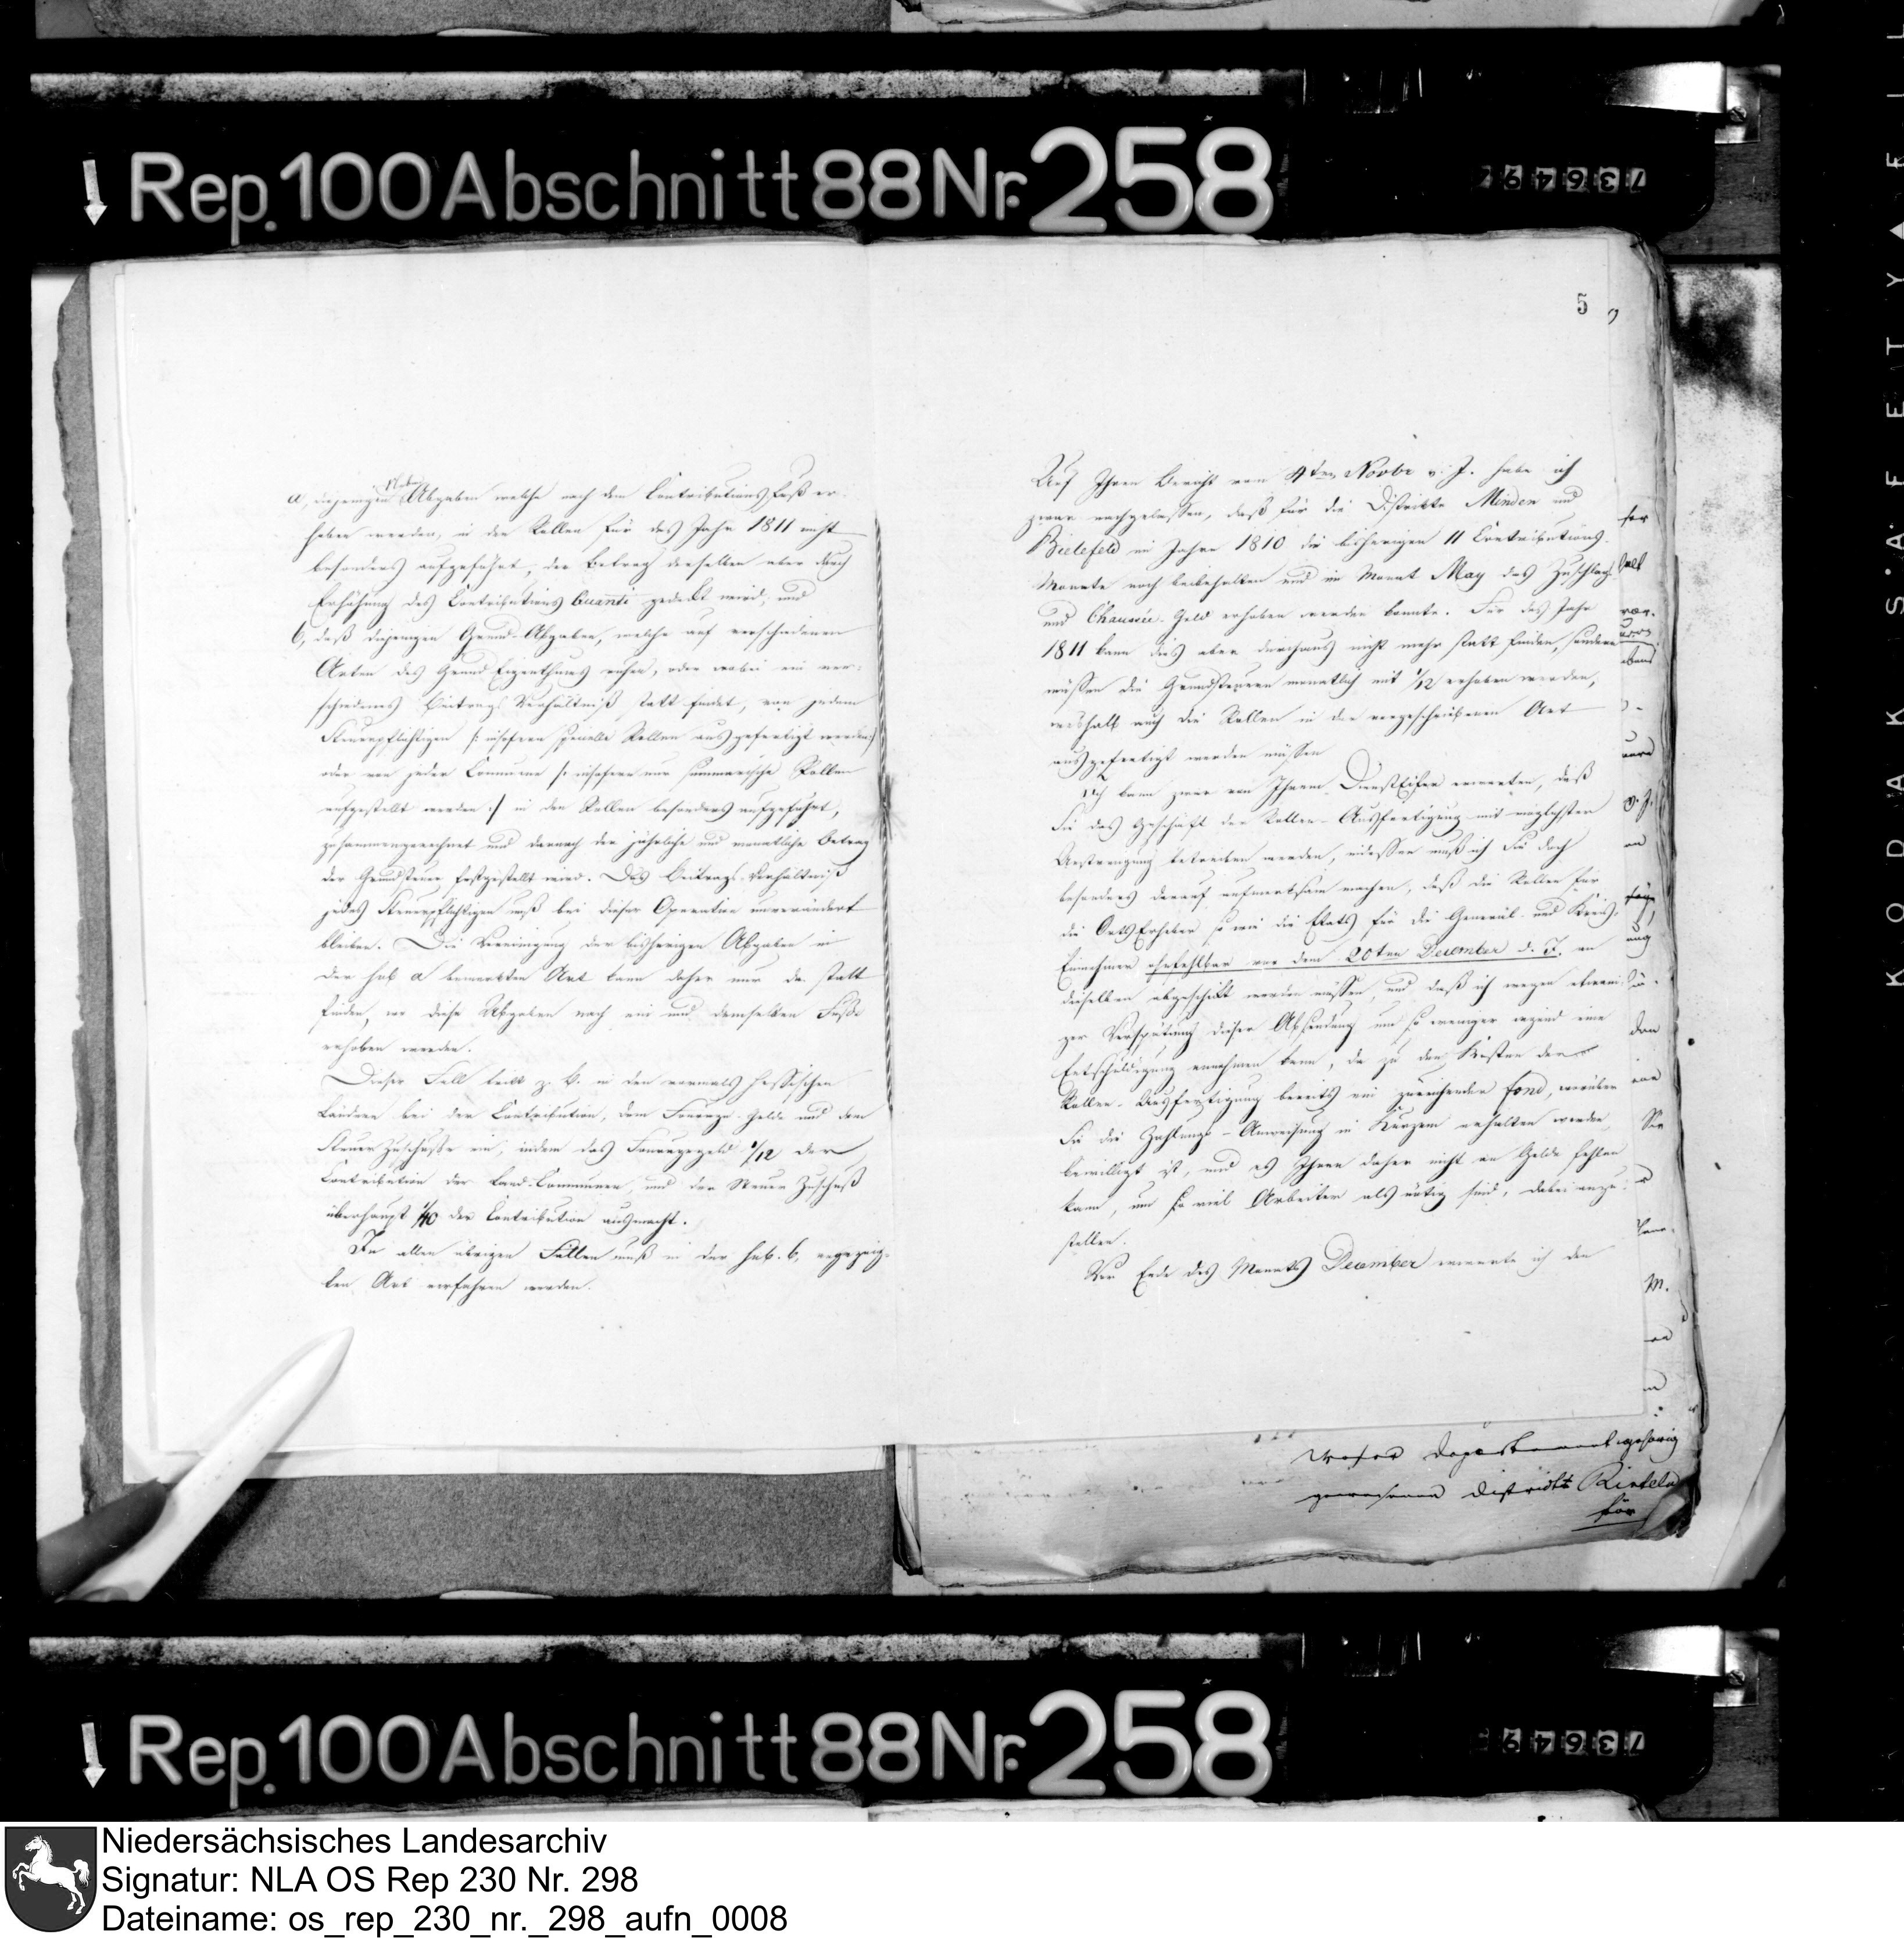 Rep. 100 Abschnitt 88 Nr. 258
736497
a, diejenigen Neben Abgaben welche nach dem Contributions Fuß er-
hoben werden, in den Rollen für das Jahr 1811 nicht
besonders aufgeführt, der Betrag derselben aber durch
Erhöhung des Contributions Quanti gedeckt wird, und
b, daß diejenigen Grund-Abgaben, welche auf verschiedenen
Arten des Grund Eigenthums ruhen, oder wobei ein ver-
schiedenes Beitrags Verhältniß statt findet, von jedem
Steuerpflichtigen /: insofern specielle Rollen ausgefertigt werden :/
oder von jeder Commune /: insofern nur summarische Rollen
aufgestellt werden :/ in den Rollen besonders aufgeführt,
zusammengerechnet und darnach der jährliche und monatliche Betrag
der Grundsteuer festgestellt wird. Das Beitrags-Verhältniß
jedes Steuerpflichtigen muß bei dieser Operation unverändert
bleiben. Die Vereinigung der bisherigen Abgaben in
der sub a bemerkten Art kann daher nur da statt
finden, wo diese Abgaben nach ein und demselben Fuße
erhoben werden.
Dieser Fall tritt z. B. in den vormals hessischen
Ländern bei der Contribution, dem Fourage-Gelde und dem
Steuer Zuschuße ein, indem das Fouragegeld 1/12 der
Contribution der Land-Communen, und der Steuer Zuschuß
überhaupt 1/40 der Contribution ausmacht.
In allen übrigen Fällen muß in der sub. b, angezeig-
ten Art verfahren werden.
5
Auf Ihren Bericht vom 4ten Novbr v. J. habe ich
zwar nachgelassen, daß für die Distrikte Minden und
Bielefeld im Jahre 1810 die bisherigen 11 Contributions-
Monate noch beibehalten und im Monat May das Zuschlag-
und Chaussée-Geld erhoben werden konnte. Für das Jahr
1811 kann dies aber durchaus nicht mehr statt finden, sondern
müssen die Grundsteuern monatlich mit 1/12 erhoben werden,
weshalb auch die Rollen in der vorgeschriebenen Art
ausgefertigt werden müssen
Ich kann zwar von Ihrem Diensteifer erwarten, daß
Sie das Geschäft der Rollen-Ausfertigung mit möglichster
Anstrengung betreiben werden, indessen muß ich Sie doch
besonders darauf aufmerksam machen, daß die Rollen für
die Orts Erheber so wie die Etats für die General- und Kreis-
Einnehmer ohnfehlbar vor dem 20ten December d. J. an
dieselben abgeschickt werden müssen, und daß ich wegen etwani-
ger Verspätung dieser Absendung um so weniger irgend eine
Entschuldigung annehmen kann, da zu den Kosten der
Rollen-Ausfertigung bereits ein zureichender fond, worüber
Sie die Zahlungs-Anweisung in Kurzem erhalten werden,
bewilligt ist, und es Ihnen daher nicht an Gelde fehlen
kann, um so viel Arbeiter als nötig sind, dabei anzu-
stellen.
Vor Ende des Monats December erwarte ich den
Weser Departement gehörig
gewesenen District Rinteln
für
Rep. 100 Abschnitt 88 Nr. 258
736497
KODAK SAFETY
Niedersächsisches Landesarchiv
Signatur: NLA OS Rep 230 Nr. 298
Dateiname: os_rep_230_nr._298_aufn_0008